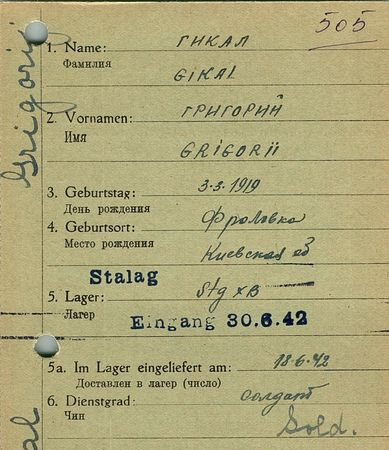 505
1. Name: ГИКАЛ
Фамилия
GIKAL
2. Vornamen: ГРИГОРИЙ
Имя
GRIGORII
Grigorii
3. Geburtstag: 3.3.1919
День рождения
4. Geburtsort: Фроловка
Место рождения
Киевская об
Stalag
5. Lager: Stg XB
Лагер
Eingang 30.6.42
5a. Im Lager eingeliefert am: 18.6.42
Доставлен в лагер (число)
6. Dienstgrad: солдат
Чин
Sold.
al